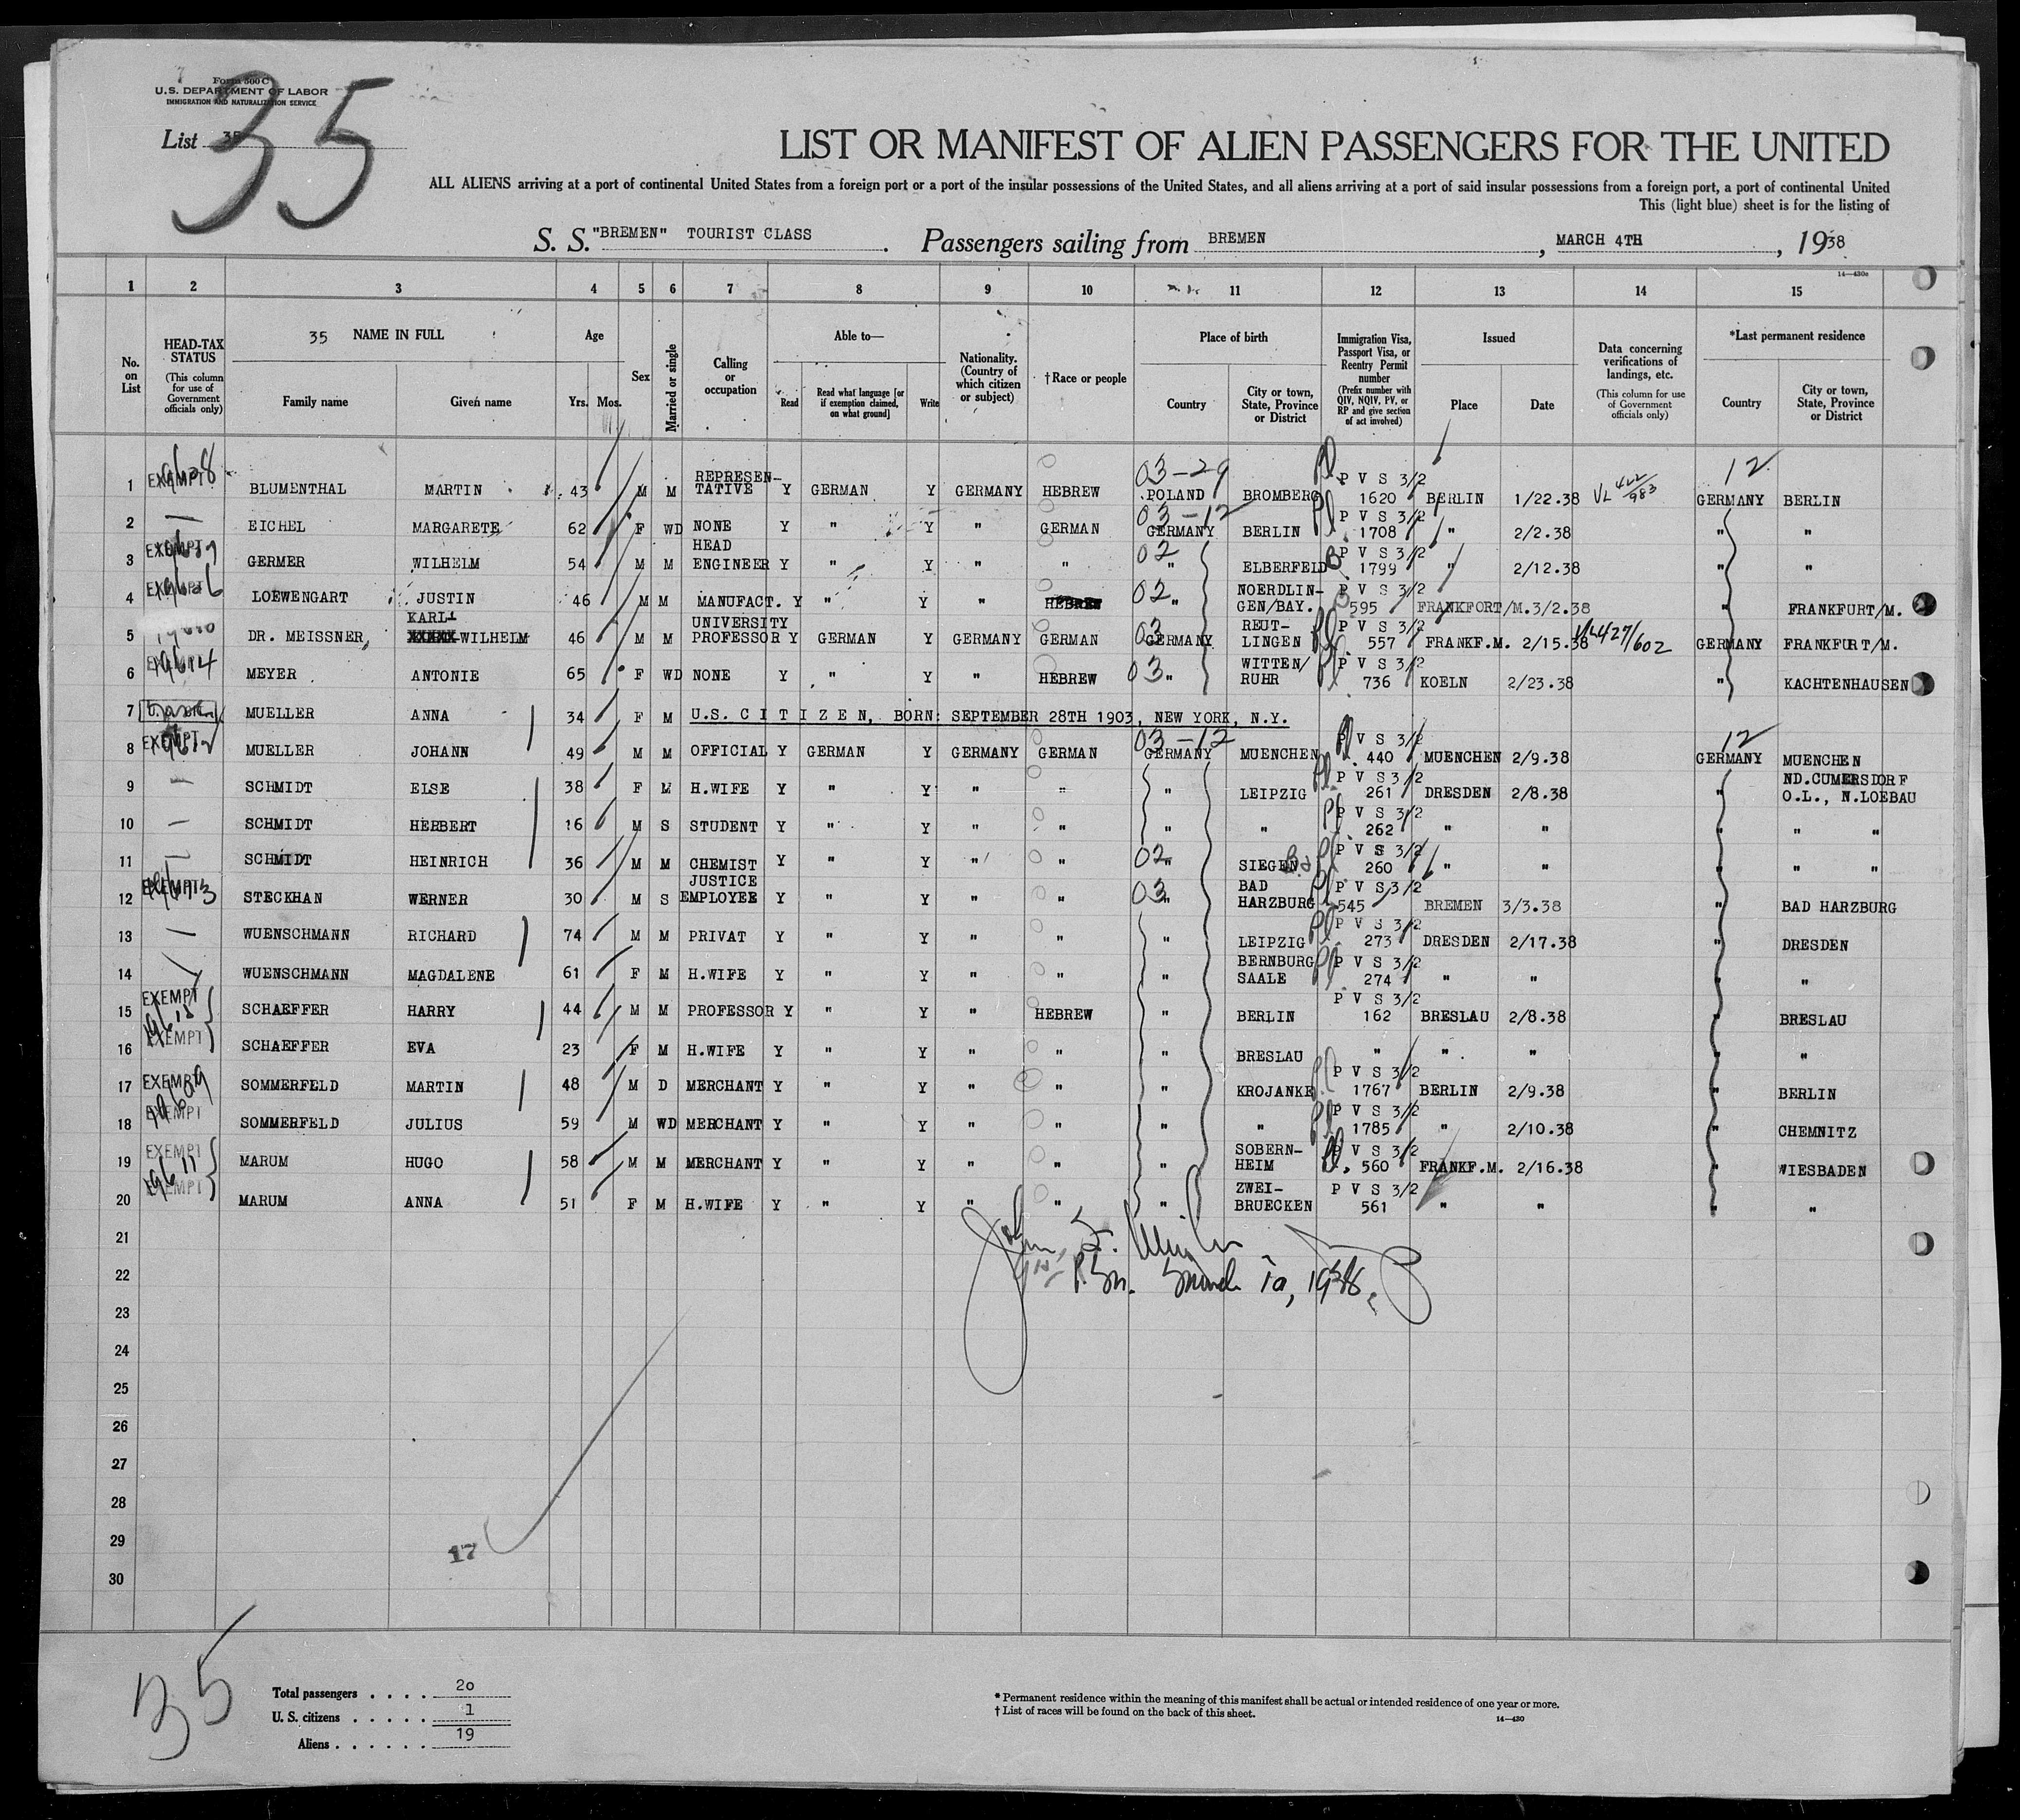 Form 500 C
U.S. DEPARTMENT OF LABOR
IMMIGRATION AND NATURALIZATION SERVICE
List 35
35
LIST OR MANIFEST OF ALIEN PASSENGERS FOR THE UNITED
ALL ALIENS arriving at a port of continental United States from a foreign port or a port of the insular possessions of the United States, and all aliens arriving at a port of said insular possessions from a foreign port, a port of continental United
This (light blue) sheet is for the listing of
S. S. "BREMEN" TOURIST CLASS. Passengers sailing from BREMEN, MARCH 4TH, 1938
14—430a
1 2 3 4 5 6 7 8 9 10 11 12 13 14 15
No. on List
HEAD-TAX STATUS (This column for use of Government officials only)
35 NAME IN FULL
Family name Given name
Age
Yrs. Mos.
Sex
Married or single
Calling or occupation
Able to—
Read Read what language [or if exemption claimed, on what ground] Write
Nationality. (Country of which citizen or subject)
†Race or people
Place of birth
Country City or town, State, Province or District
Immigration Visa, Passport Visa, or Reentry Permit number (Prefix number with QIV, NQIV, PV, or RP and give section of act involved)
Issued
Place Date
Data concerning verifications of landings, etc. (This column for use of Government officials only)
*Last permanent residence
Country City or town, State, Province or District
03-29 12
1 EXEMPT BLUMENTHAL MARTIN 43 M M REPRESEN-TATIVE Y GERMAN Y GERMANY HEBREW POLAND BROMBERG P V S 3/2 1620 BERLIN 1/22.38 GERMANY BERLIN
03-12
2 — EICHEL MARGARETE 62 F WD NONE Y " Y " GERMAN GERMANY BERLIN P V S 3/2 1708 " 2/2.38 " "
3 EXEMPT GERMER WILHELM 54 M M HEAD ENGINEER Y " Y " " 02 " ELBERFELD P V S 3/2 1799 " 2/12.38 " "
4 EXEMPT LOEWENGART JUSTIN 46 M M MANUFACT. Y " Y " HEBREW 02 " NOERDLIN-GEN/BAY. P V S 3/2 595 FRANKFORT/M. 3/2.38 " FRANKFURT/M.
5 DR. MEISSNER, KARL- WILHELM 46 M M UNIVERSITY PROFESSOR Y GERMAN Y GERMANY GERMAN 03 GERMANY REUT-LINGEN P V S 3/2 557 FRANKF.M. 2/15.38 GERMANY FRANKFURT/M.
6 EXEMPT MEYER ANTONIE 65 F WD NONE Y " Y " HEBREW 03 " WITTEN/RUHR P V S 3/2 736 KOELN 2/23.38 " KACHTENHAUSEN
7 MUELLER ANNA 34 F M U.S. C I T I Z E N, BORN: SEPTEMBER 28TH 1903, NEW YORK, N.Y.
03-12 12
8 EXEMPT MUELLER JOHANN 49 M M OFFICIAL Y GERMAN Y GERMANY GERMAN GERMANY MUENCHEN P V S 3/2 440 MUENCHEN 2/9.38 GERMANY MUENCHEN
9 — SCHMIDT ELSE 38 F M H.WIFE Y " Y " " " LEIPZIG P V S 3/2 261 DRESDEN 2/8.38 " ND.CUMERSDORF O.L., N.LOEBAU
10 — SCHMIDT HERBERT 16 M S STUDENT Y " Y " " " " P V S 3/2 262 " " " " "
11 — SCHMIDT HEINRICH 36 M M CHEMIST Y " Y " " 02 " SIEGEN P V S 3/2 260 " " " " "
12 EXEMPT STECKHAN WERNER 30 M S JUSTICE EMPLOYEE Y " Y " " 03 " BAD HARZBURG P V S 3/2 545 BREMEN 3/3.38 " BAD HARZBURG
13 — WUENSCHMANN RICHARD 74 M M PRIVAT Y " Y " " " LEIPZIG P V S 3/2 273 DRESDEN 2/17.38 " DRESDEN
14 WUENSCHMANN MAGDALENE 61 F M H.WIFE Y " Y " " " BERNBURG SAALE P V S 3/2 274 " " " "
15 EXEMPT SCHAEFFER HARRY 44 M M PROFESSOR Y " Y " HEBREW " BERLIN P V S 3/2 162 BRESLAU 2/8.38 " BRESLAU
16 EXEMPT SCHAEFFER EVA 23 F M H.WIFE Y " Y " " " BRESLAU " " " " "
17 EXEMPT SOMMERFELD MARTIN 48 M D MERCHANT Y " Y " " " KROJANKE P V S 3/2 1767 BERLIN 2/9.38 " BERLIN
18 EXEMPT SOMMERFELD JULIUS 59 M WD MERCHANT Y " Y " " " " P V S 3/2 1785 " 2/10.38 " CHEMNITZ
19 EXEMPT MARUM HUGO 58 M M MERCHANT Y " Y " " " SOBERN-HEIM P V S 3/2 560 FRANKF.M. 2/16.38 " WIESBADEN
20 EXEMPT MARUM ANNA 51 F M H.WIFE Y " Y " " " ZWEI-BRUECKEN P V S 3/2 561 " " " "
21
22 March 10, 1938
23
24
25
26
27
28
29
17
30
35
Total passengers . . . . 20
U. S. citizens . . . . . 1
Aliens . . . . . . 19
* Permanent residence within the meaning of this manifest shall be actual or intended residence of one year or more.
† List of races will be found on the back of this sheet.
14—430